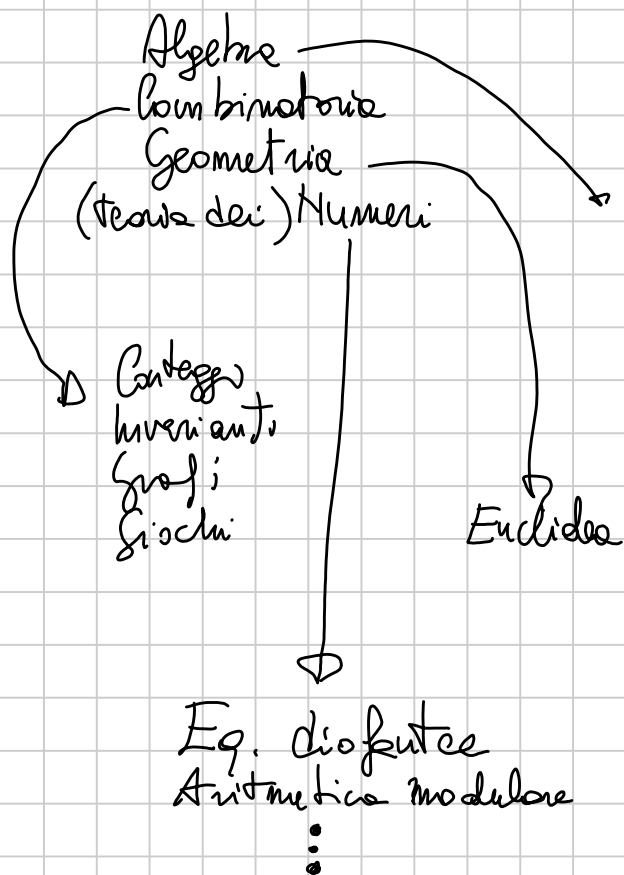 Algebra
Combinatoria
Geometria
(teoria dei) Numeri
Conteggi
Invarianti
Grafi
Giochi
Euclidea
Eq. diofantee
Aritmetica modulare